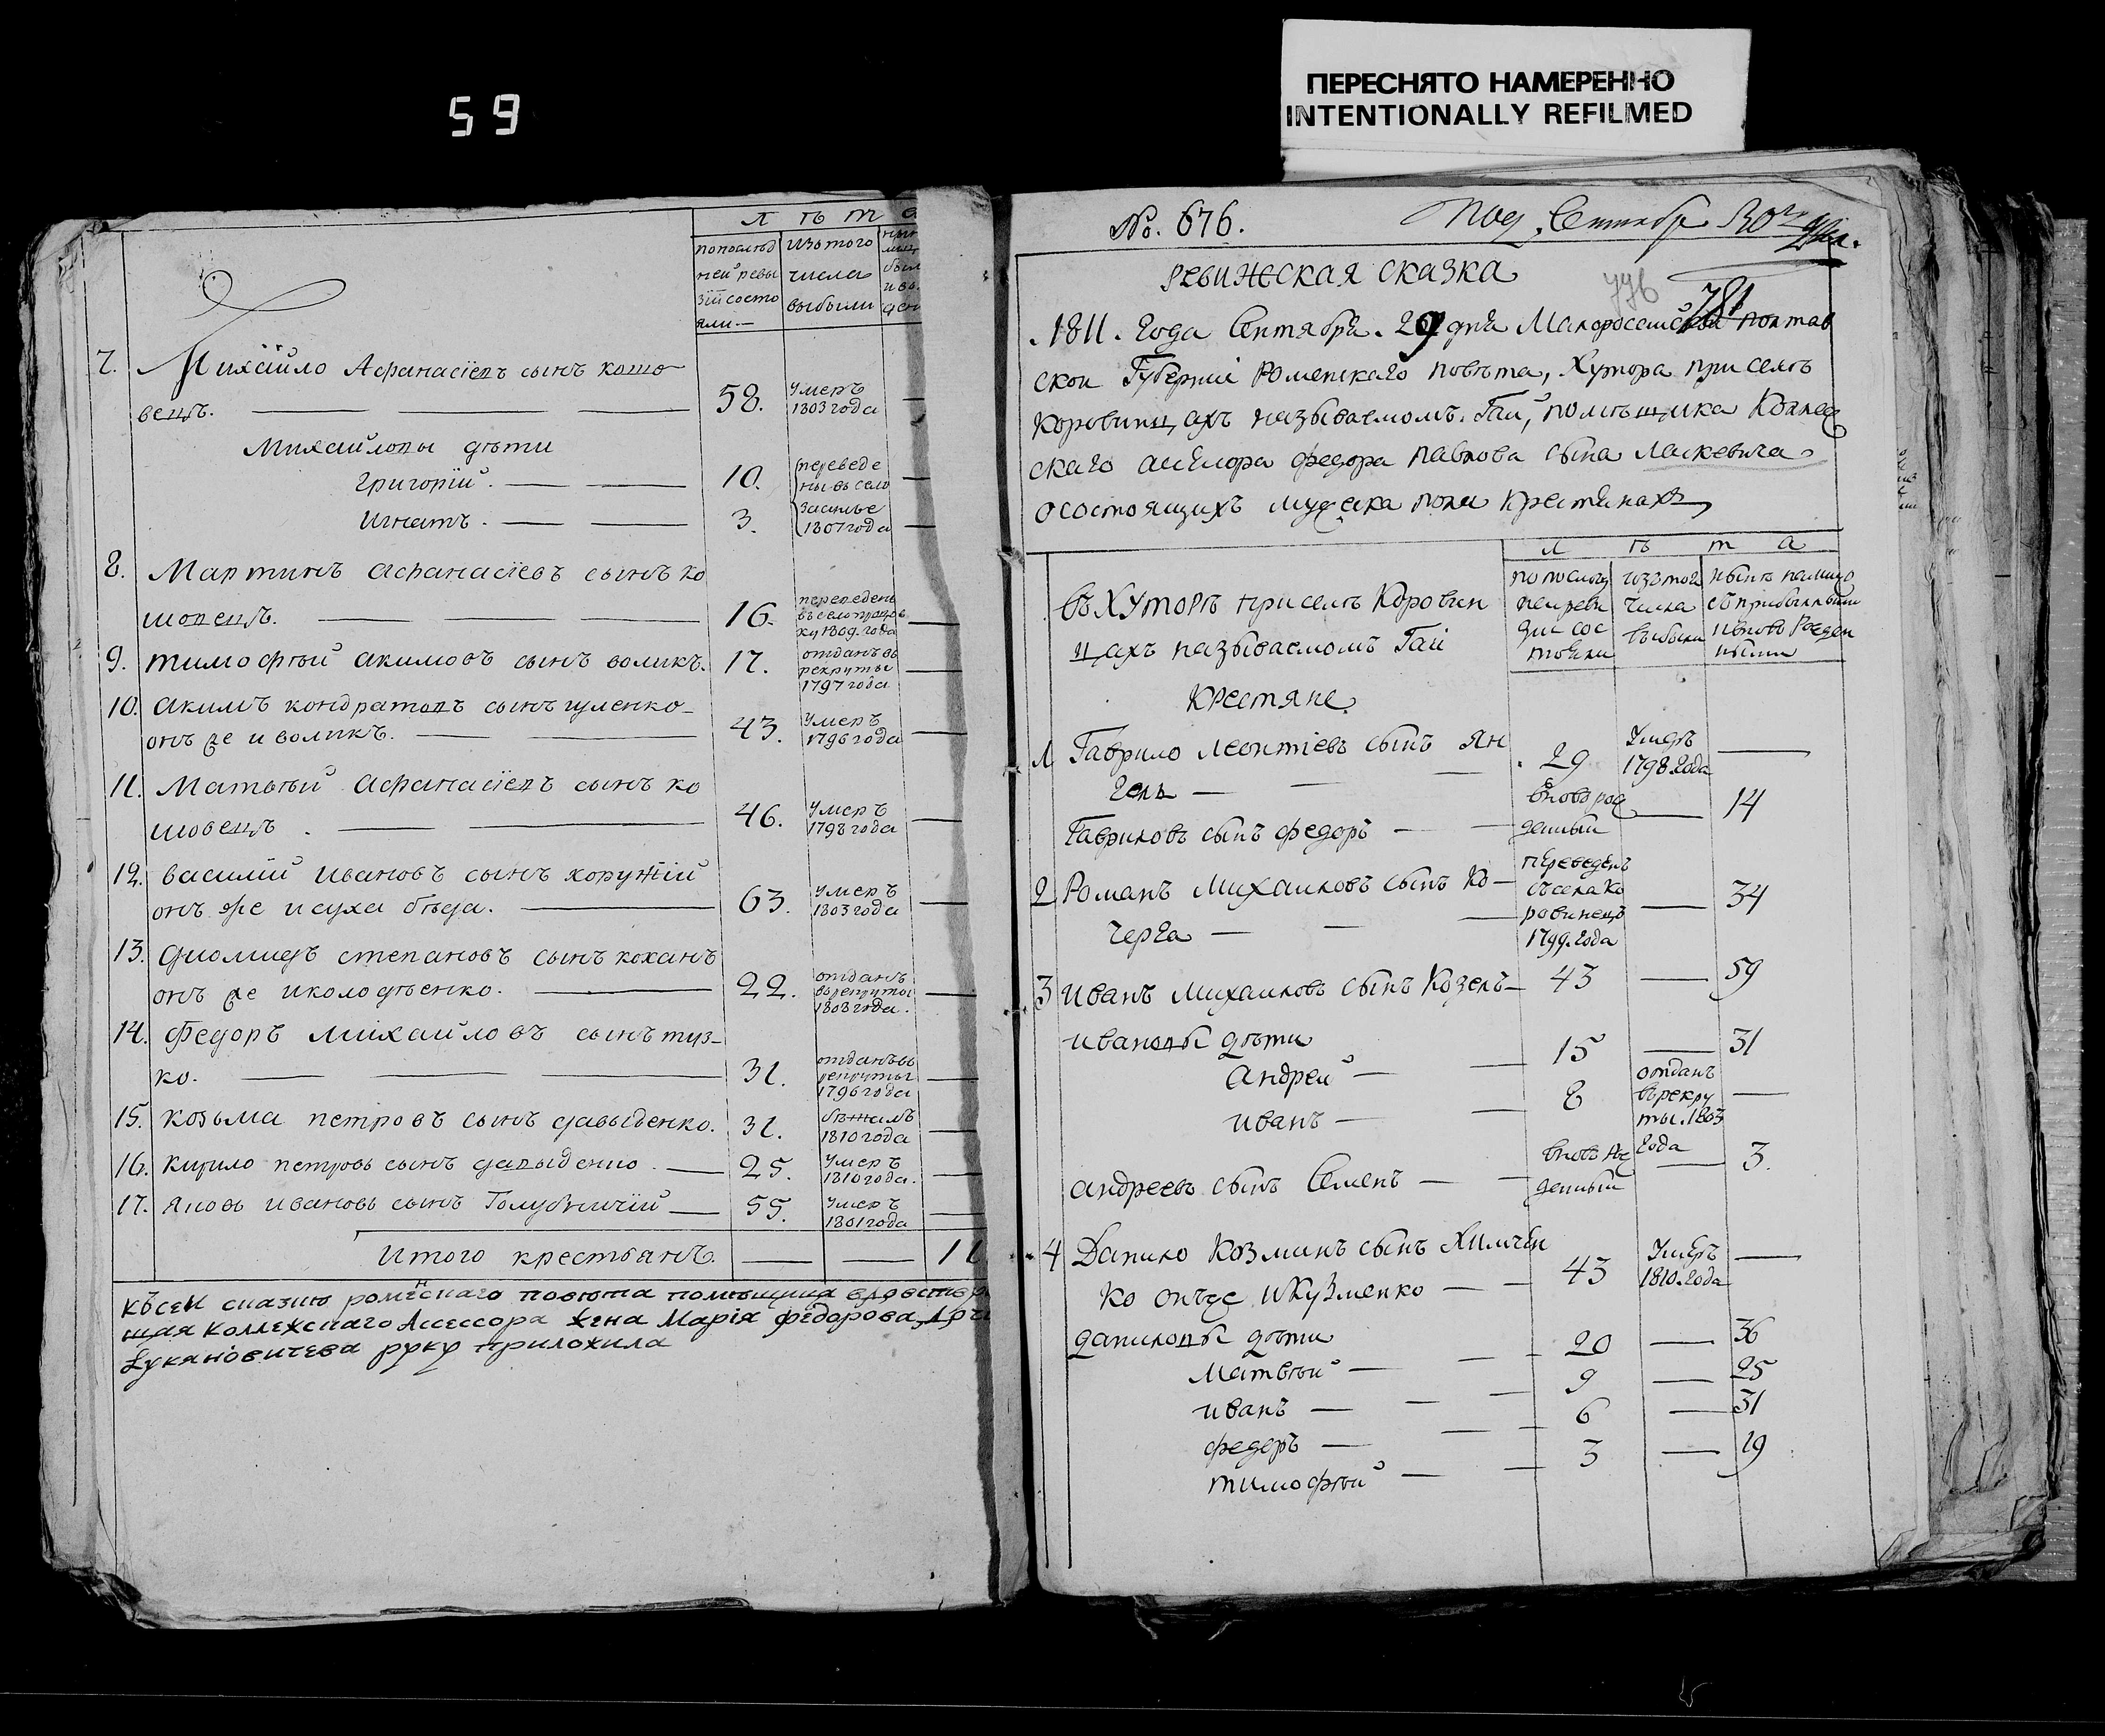 59
ПЕРЕСНЯТО НАМЕРЕННО
INTENTIONALLY REFILMED
Л ѣ т а
попослѣд
ней ревы
зїи состо
яли.
изъ того
числа
выбыли
7. Михайло Афанасїевъ сынъ кошо
вецъ. 58. умеръ 1803 года
Михайловы дѣти
Григорїй. 10. переведе
ны въ село
Игнатъ. 3. 1807 года
8. Мартинъ Афанасїевъ сынъ ко
шовецъ. 16. переведенъ
1809. года
9. тимофѣй акимовъ сынъ воликъ. 17. отданъ въ
рекруты
1797 года
10. акимъ кондратовъ сынъ гуленко
онъ же и воликъ. 43. умеръ
1796 года
11. Матвѣй Афанасїевъ сынъ ко
шовецъ. 46. умеръ
1798 года
12. василїй ивановъ сынъ хоружїй
онъ же и суха бѣда. 63. умеръ
1803 года
13. диомидъ степановъ сынъ коханъ
онъ же и колодѣенко. 22. отданъ
въ рекруты
1808 года.
14. Федоръ михайловъ сынъ туз
ко. 31. отданъ въ
рекруты
1796 года
15. козьма петровъ сынъ давыденко. 31. бѣжалъ
1810 года
16. кирило петровъ сынъ давыденко. 25. умеръ
1810 года.
17. яковъ ивановъ сынъ Голубничїй 55. умеръ
1801 года
Итого крестьянъ.
къ сей сказкѣ роменскаго повѣта помѣщица
коллежскаго Асессора жена Марїя федорова
Лукяновичева руку приложила
№. 676.
Под. Сентябр 30го
ревижская сказка
776
781
1811. года Сентября. 29 дня Малоросейской полтав
скои Губернии Роменскаго повѣта, Хутора при селѣ
Коровинцахъ называемомъ. Гаи, помѣщика Коллеж
скаго асесора федора павлова сына Маскевича
о состоящихъ мужеска пола крестянахъ
Л ѣ т а
по послед
ней реви
зии сос
тояли
изъ того
числа
выбыли
нынѣ налицо
съ прибылыми
и вновь рожден
ными
въ Хуторѣ при селѣ Коровин
цахъ называемомъ Гаи
Крестяне
1 Гаврило леонтїевъ сынъ Ян
гель 29 умеръ
1798 года
Гавриловъ сынъ федоръ вновь рож
денный 14
2 Романъ Михаиловъ сынъ Ко
черга переведенъ
съ села Ко
ровинецъ
1799. года 34
3 Иванъ Михаиловъ сынъ Козелъ 43 59
ивановы дѣти
андрей 15 31
иванъ 8 отданъ
въ рекру
ты. 1803
года
андреевъ сынъ Семенъ вновь рож
денный 3.
4 Данило Козминъ сынъ Химчен
ко онъ же и Кузменко 43 умеръ
1810. года
даниловы дѣти
Матвѣй 20 36
иванъ 9 25
федоръ 6 31
тимофѣй 3 19